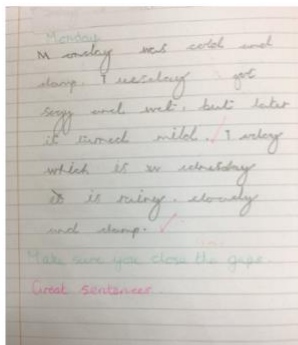 Monday
M onday was cold and
damp. T uesday got
sogy and wet. but later
it turned mild. T oday
which is w ednesday
it is rainy. clowdy
and damp.
Make sure you close the gaps.
Great sentences